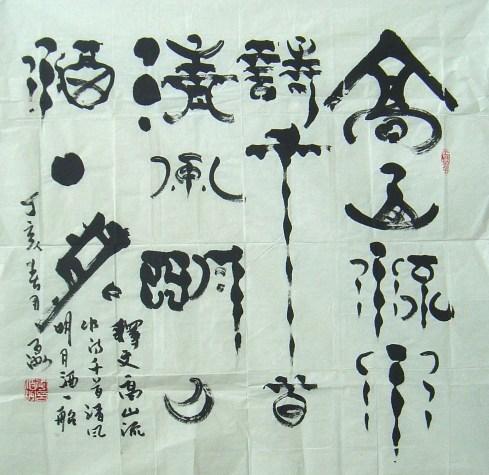 高山流水
詩千首
清風明月
酒一船
釋文高山流
水詩千首清風
明月酒一船
丁亥春月